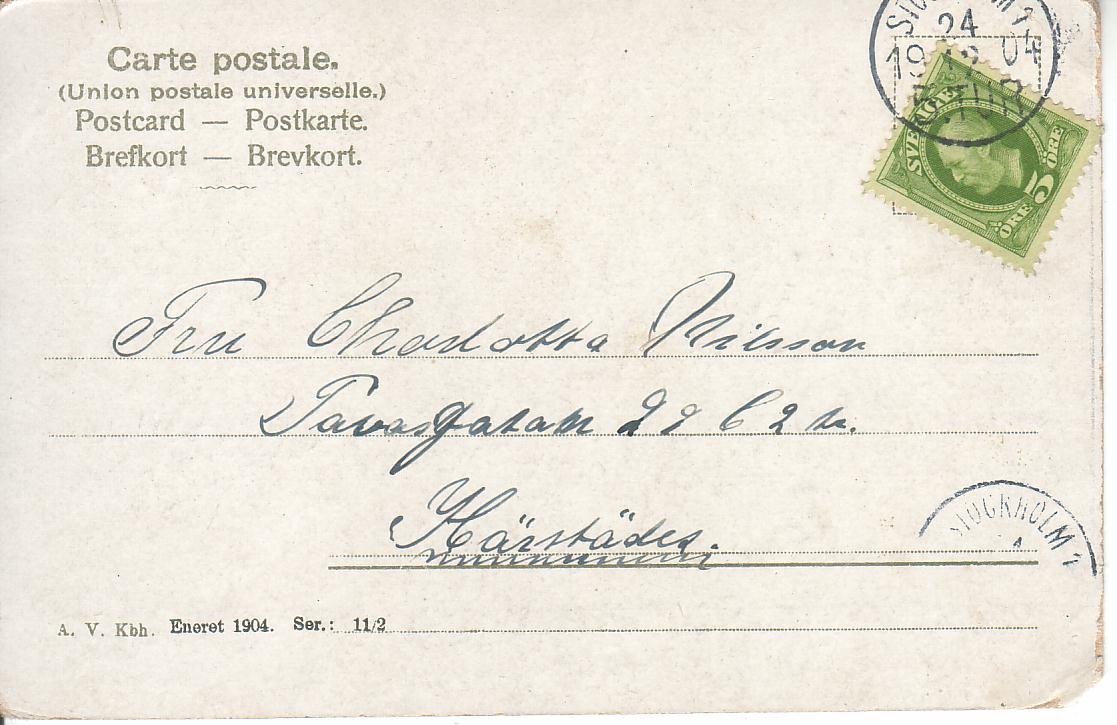 Carte postale.
(Union postale universelle.)
Postcard — Postkarte.
Brefkort — Brevkort.
24
19 12 04
5.TUR
SVERIGE
5
ÖRE
ÖRE
Fru Charlotta Nilsson
Tavasgatan 22 C 2 tr.
Härstädes.
STOCKHOLM 1
A. V. Kbh. Eneret 1904. Ser.: 11/2